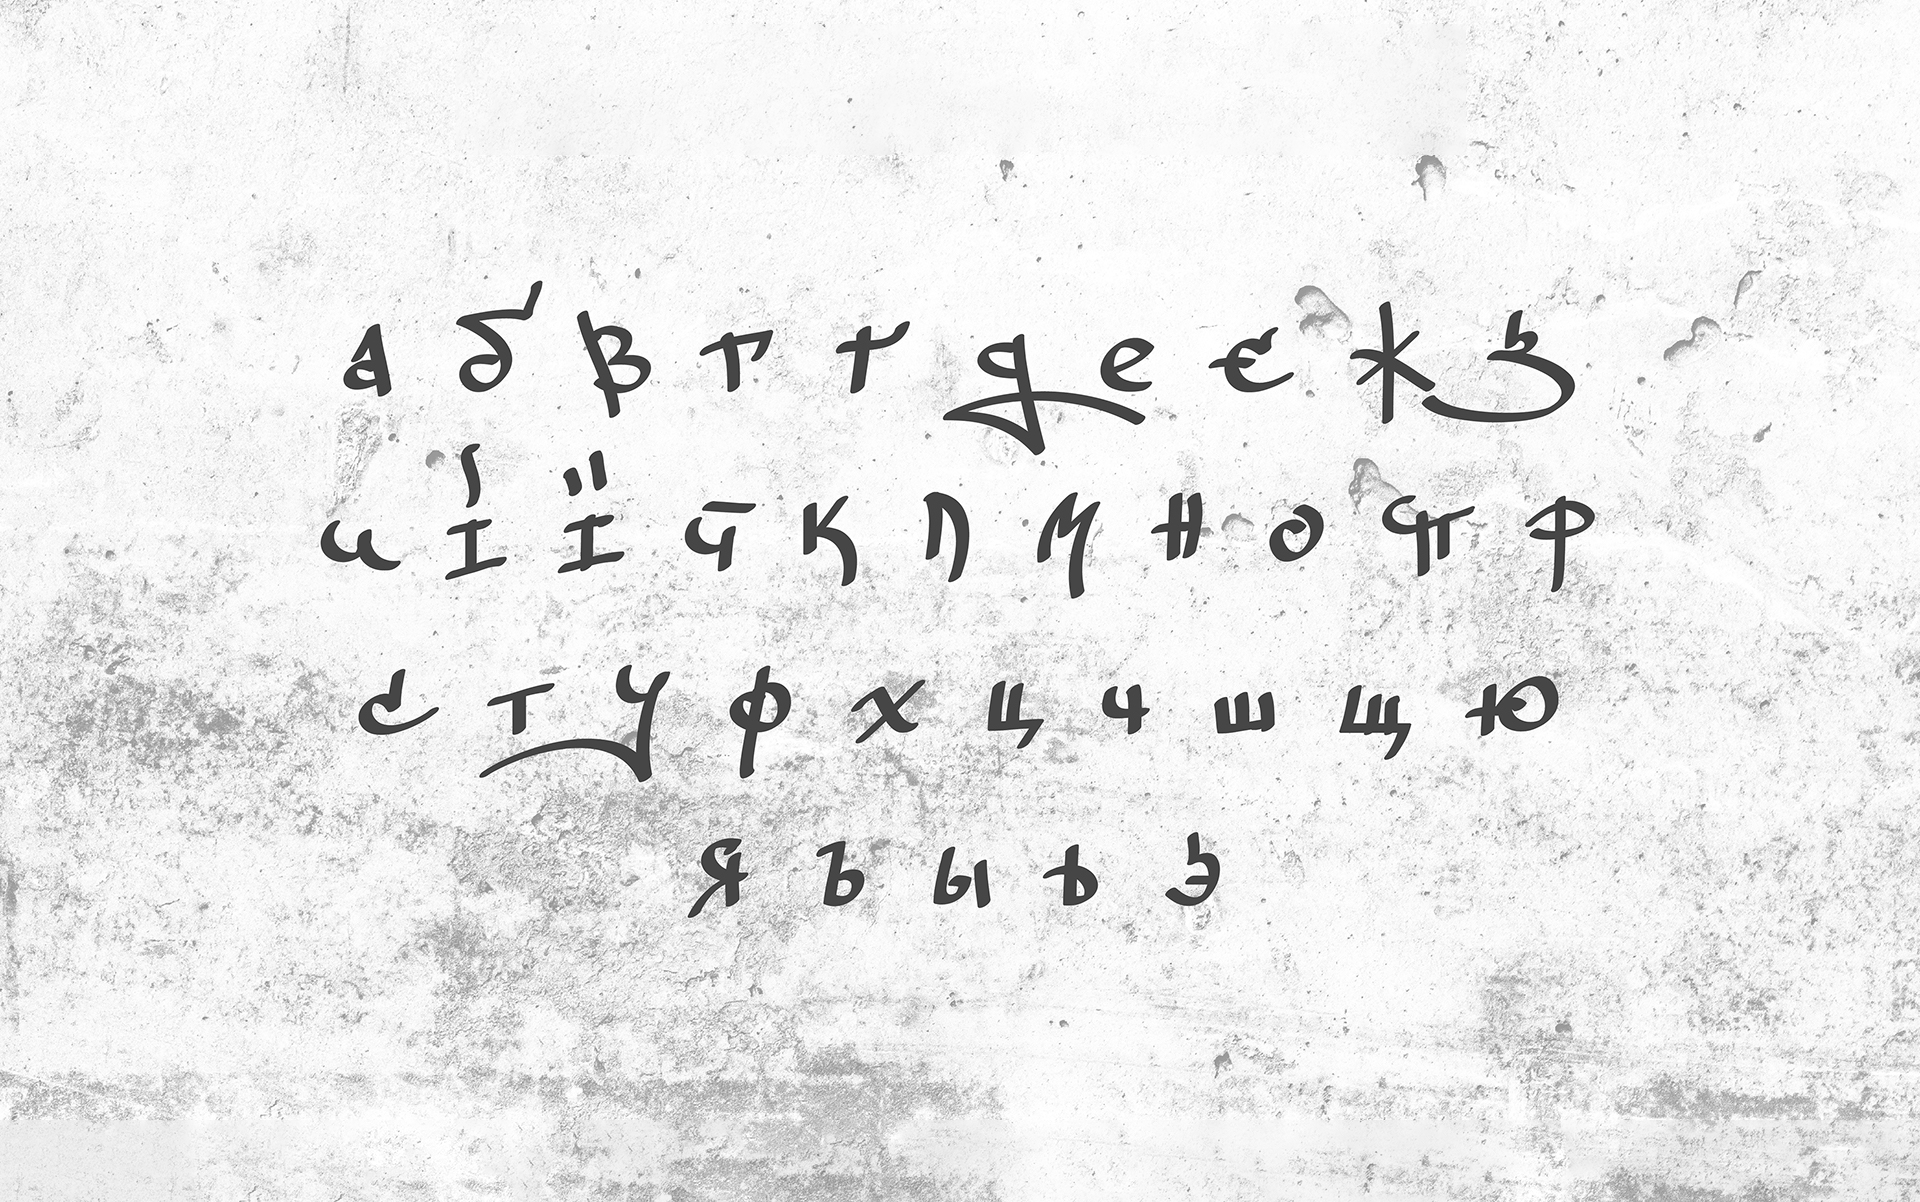 а б в г ґ д е є ж з
и і ї й к л м н о п р
с т у ф х ц ч ш щ ю
я ъ ы ь э